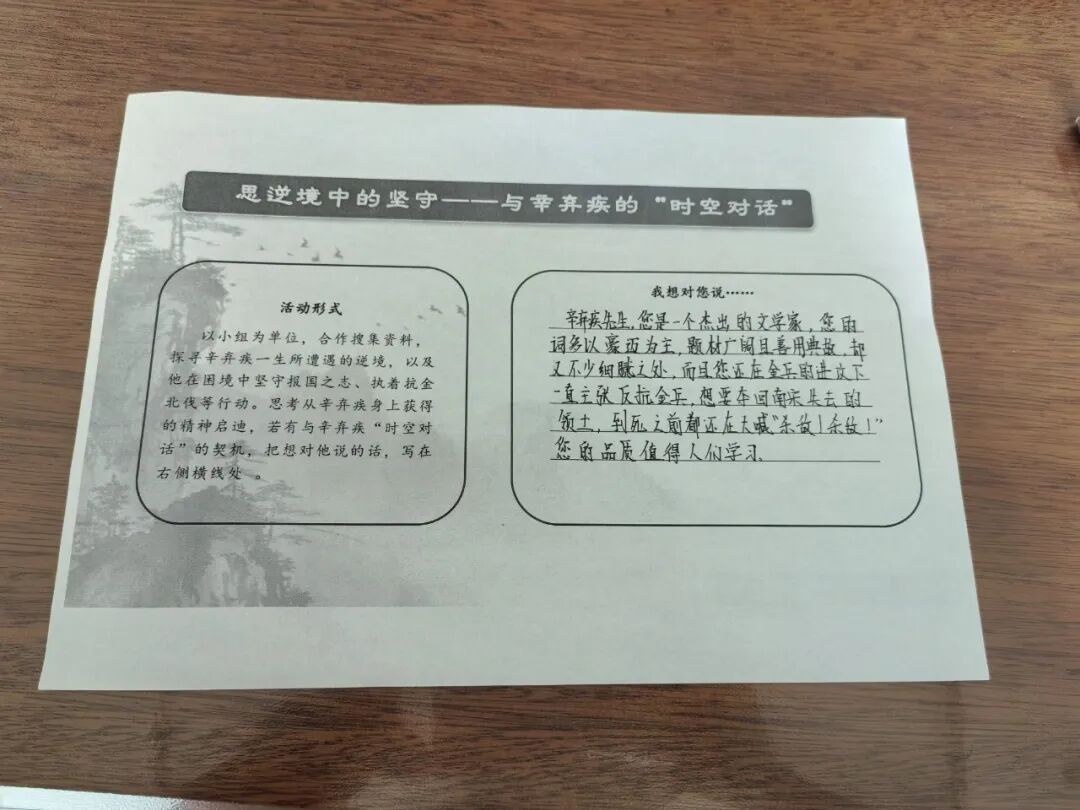 思逆境中的坚守——与辛弃疾的“时空对话”
活动形式
以小组为单位，合作搜集资料，
探寻辛弃疾一生所遭遇的逆境，以及
他在困境中坚守报国之志、执着抗金
北伐等行动。思考从辛弃疾身上获得
的精神启迪，若有与辛弃疾“时空对
话”的契机，把想对他说的话，写在
右侧横线处 。
我想对您说……
辛弃疾先生，您是一个杰出的文学家，您的
词多以豪迈为主，题材广阔且善用典故，却
又不少细腻之处，而且您还在金兵的进攻下
一直主张反抗金兵，想要夺回南宋失去的
领土，到死之前都还在大喊“杀敌！杀敌！”
您的品质值得人们学习.